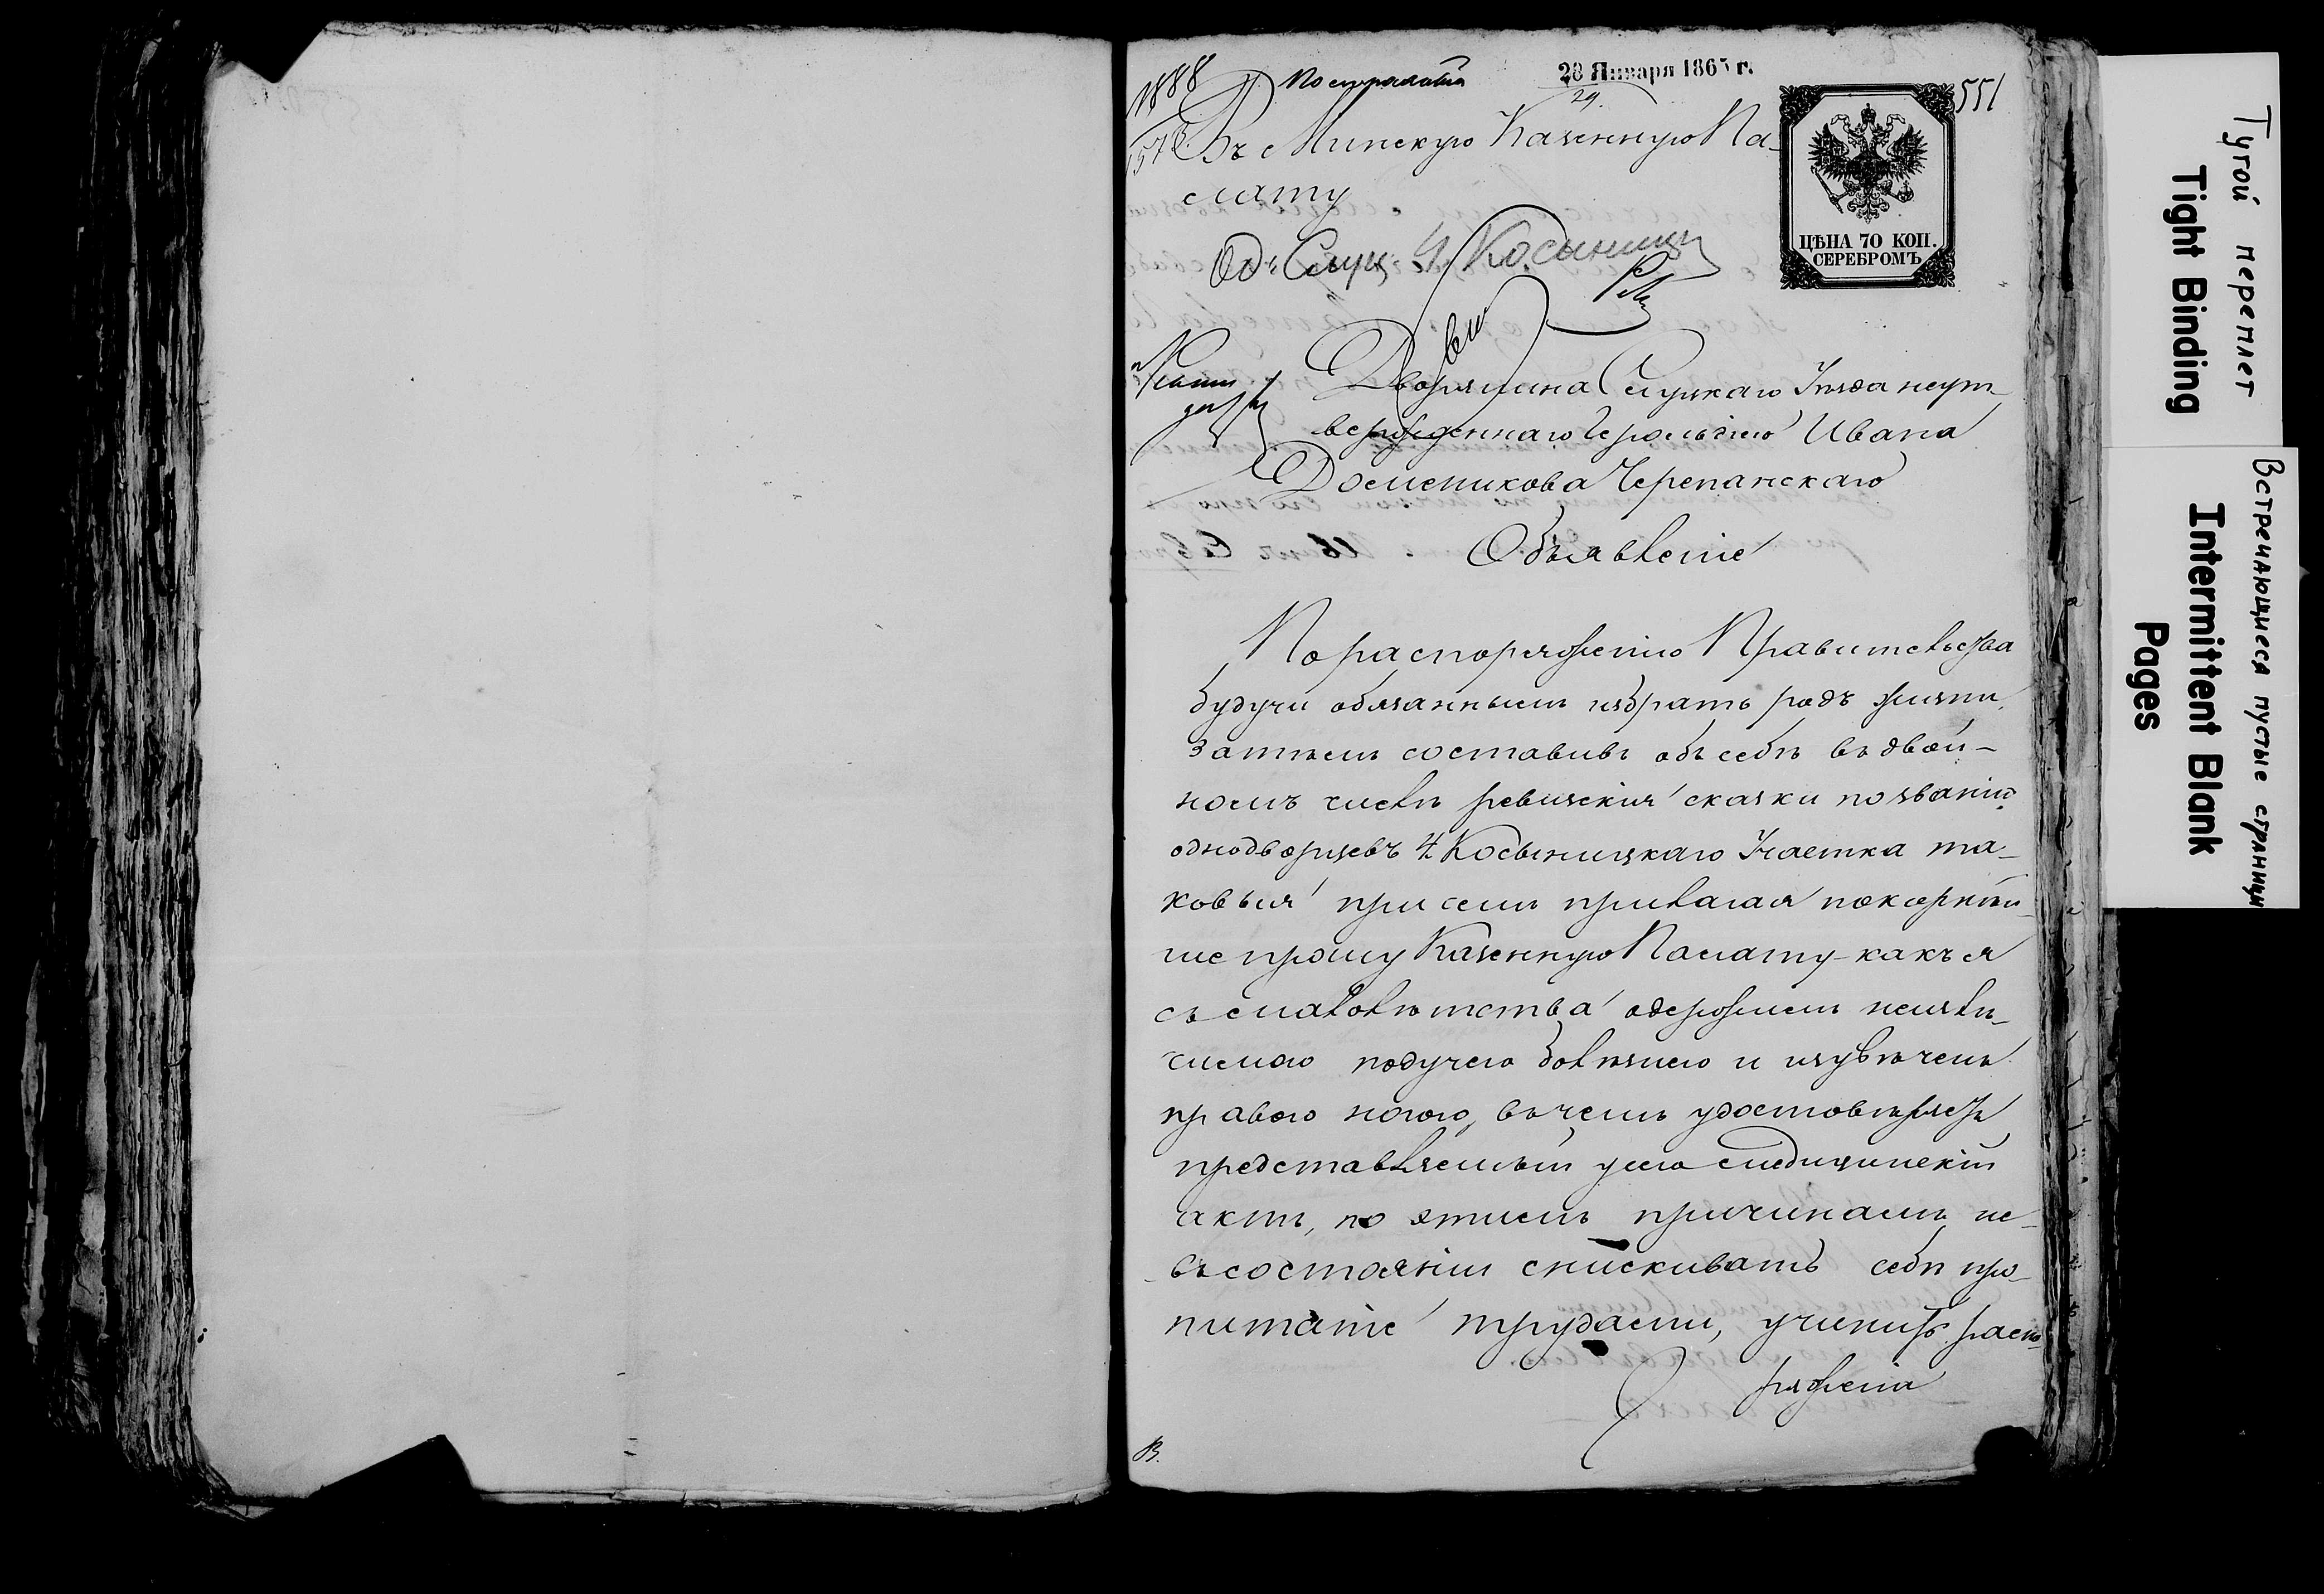 1888
28 Января 1865 г.
29.
551
Въ Минскую Казенную Па-
лату
ЦѢНА 70 КОП.
СЕРЕБРОМЪ
Од. Слуц. 4 Косыниц
Дворянина Слуцкаго Уѣзда неут-
вержденнаго Герольдіею Ивана
Доменикова Черепанскаго
Объявленіе
По распоряженію Правительства
будучи обязаннымъ избрать родъ жизни,
затѣмъ составивъ объ себѣ въ двой-
номъ числѣ ревизскія сказки по званію
однодворцевъ 4 Косыницкаго Участка та-
ковыя при семъ прилагая покорнѣй-
ше прошу Казенную Палату какъ я
съ малолѣтства одержимъ неизлѣ-
чимою падучею болѣзнею и изувѣченъ
правою ногою, въ чемъ удостовѣряетъ
представляемый у сего медицинскій
актъ, по этимъ причинамъ не-
въ состояніи снискивать себѣ про-
питаніе трудами, учинить распо-
ряженія
В.
Тугой переплет
Tight Binding
Встречающиеся пустые страницы
Intermittent Blank
Pages